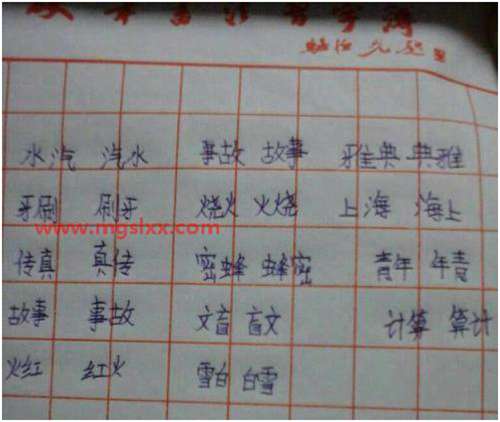 水汽 汽水 事故 故事 雅典 典雅
牙刷 刷牙 烧火 火烧 上海 海上
www.mgslxx.com
传真 真传 密蜂 蜂密 青年 年青
故事 事故 文盲 盲文 计算 算计
火红 红火 雪白 白雪